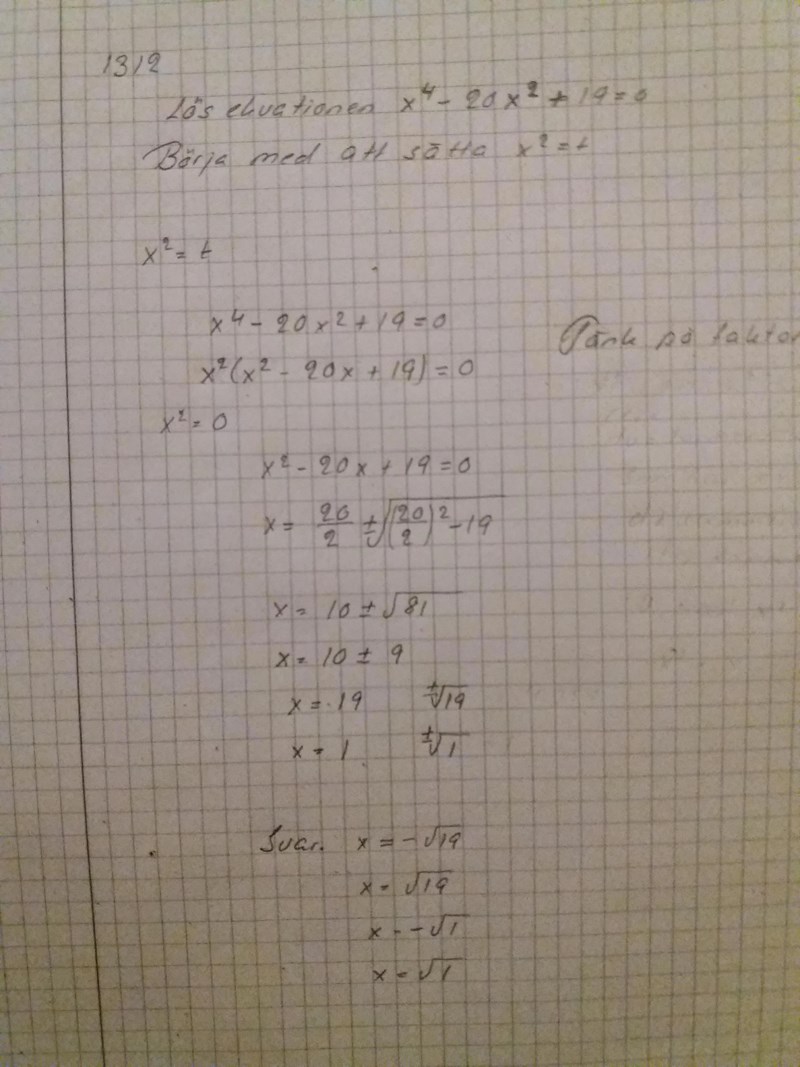 1312
Lös ekvationen x⁴ - 20x² + 19 = 0
Börja med att sätta x² = t
x² = t
x⁴ - 20x² + 19 = 0
Tänk på faktor
x²(x² - 20x + 19) = 0
x² = 0
x² - 20x + 19 = 0
x = 20/2 ± √((20/2)² - 19)
x = 10 ± √81
x = 10 ± 9
x = 19 ±√19
x = 1 ±√1
Svar. x = -√19
x = √19
x = -√1
x = √1